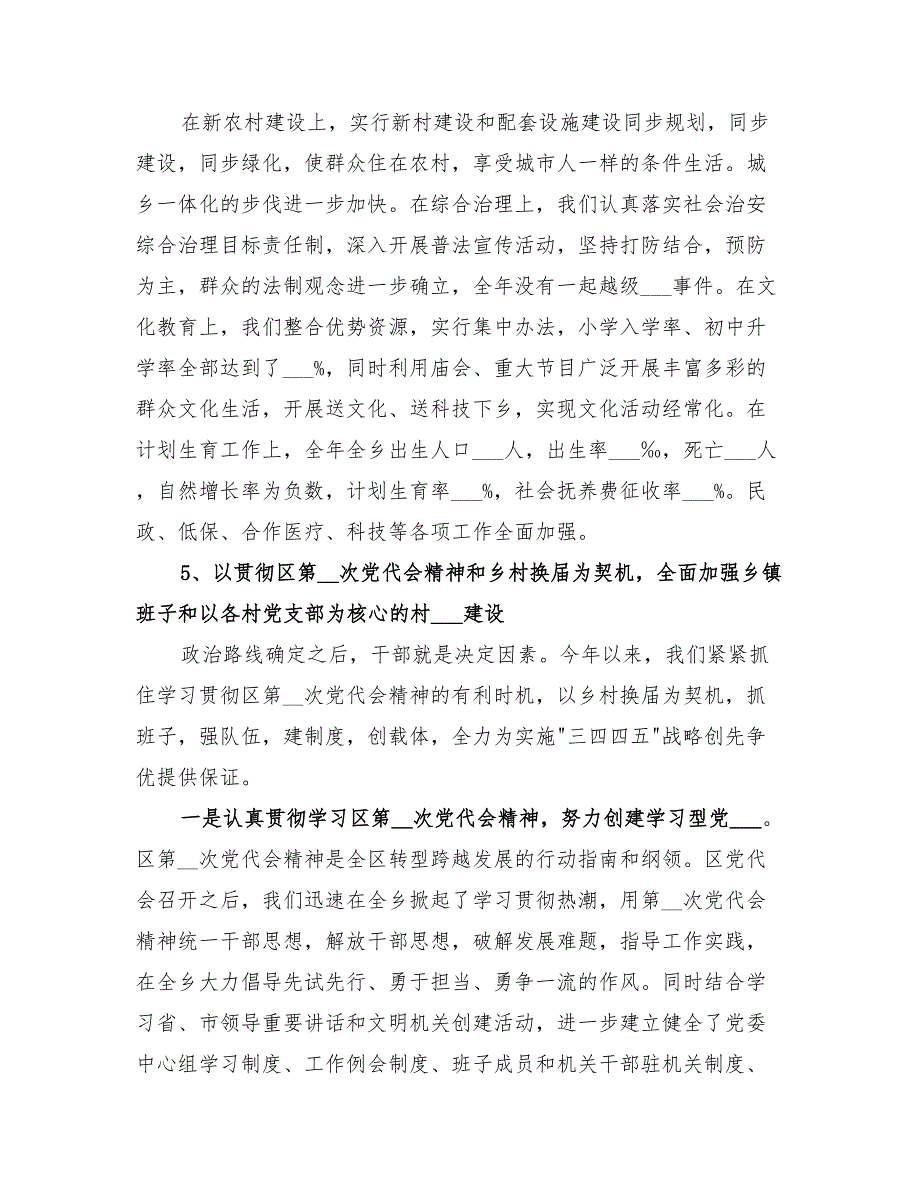 在新农村建设上，实行新村建设和配套设施建设同步规划，同步
建设，同步绿化，使群众住在农村，享受城市人一样的条件生活。城
乡一体化的步伐进一步加快。在综合治理上，我们认真落实社会治安
综合治理目标责任制，深入开展普法宣传活动，坚持打防结合，预防
为主，群众的法制观念进一步确立，全年没有一起越级___事件。在文
化教育上，我们整合优势资源，实行集中办法，小学入学率、初中升
学率全部达到了___%，同时利用庙会、重大节目广泛开展丰富多彩的
群众文化生活，开展送文化、送科技下乡，实现文化活动经常化。在
计划生育工作上，全年全乡出生人口___人，出生率___‰，死亡___人
，自然增长率为负数，计划生育率___%，社会抚养费征收率___%。民
政、低保、合作医疗、科技等各项工作全面加强。
5、以贯彻区第__次党代会精神和乡村换届为契机，全面加强乡镇
班子和以各村党支部为核心的村___建设
政治路线确定之后，干部就是决定因素。今年以来，我们紧紧抓
住学习贯彻区第__次党代会精神的有利时机，以乡村换届为契机，抓
班子，强队伍，建制度，创载体，全力为实施"三四四五"战略创先争
优提供保证。
一是认真贯彻学习区第__次党代会精神，努力创建学习型党___。
区第__次党代会精神是全区转型跨越发展的行动指南和纲领。区党代
会召开之后，我们迅速在全乡掀起了学习贯彻热潮，用第__次党代会
精神统一干部思想，解放干部思想，破解发展难题，指导工作实践，
在全乡大力倡导先试先行、勇于担当、勇争一流的作风。同时结合学
习省、市领导重要讲话和文明机关创建活动，进一步建立健全了党委
中心组学习制度、工作例会制度、班子成员和机关干部驻机关制度、